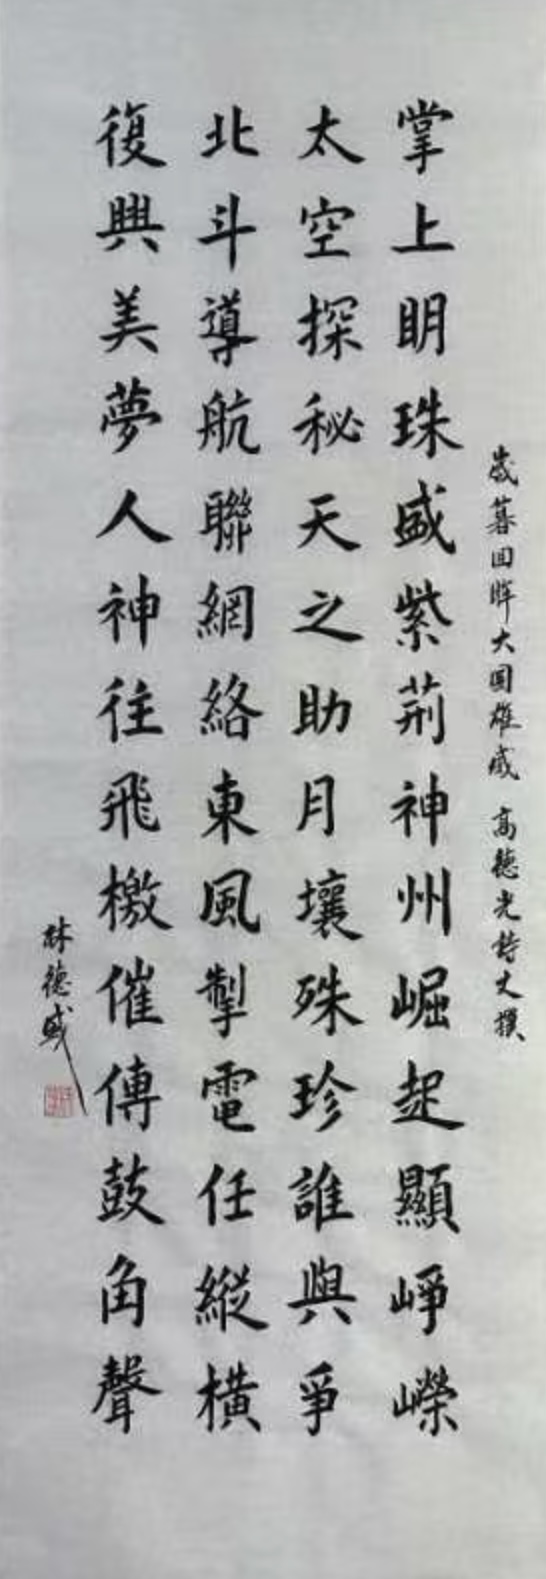 歲暮回眸大國雄威 高德光詩文撰
掌上明珠盛紫荊神州崛起顯崢嶸
太空探秘天之助月壤殊珍誰與爭
北斗導航聯網絡東風掣電任縱橫
復興美夢人神往飛檄催傳鼓角聲
林德盛